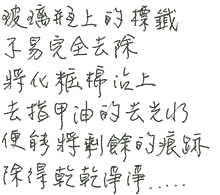 玻璃瓶上的標籤
不易完全去除
將化粧棉沾上
去指甲油的去光水
便能將剩餘的痕跡
除得乾乾淨淨.....